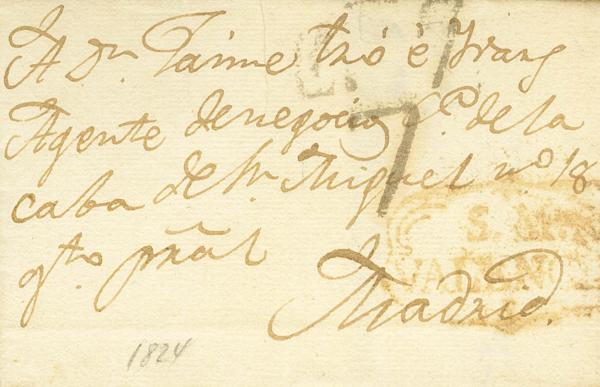 A Dn Jaime
Agente de negocios C.e de la
caba de Sn Miguel no 18
qto. pñal
Madrid.
S. M
VALENC
1824